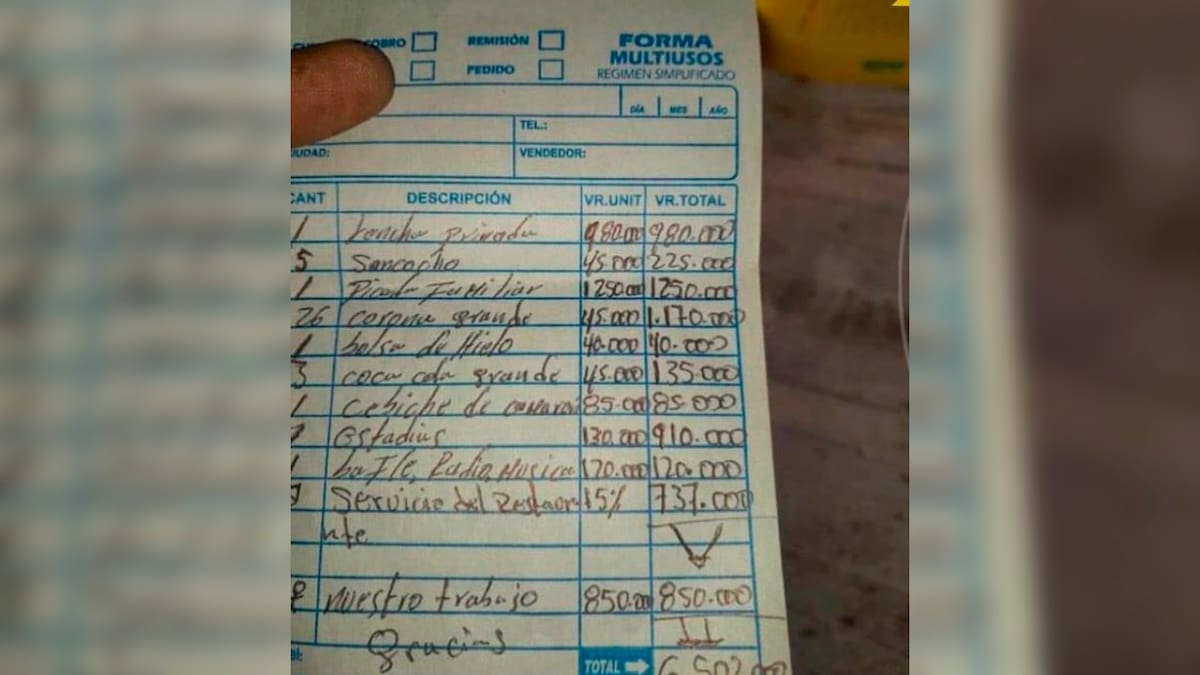 COBRO REMISIÓN FORMA
PEDIDO MULTIUSOS
REGIMEN SIMPLIFICADO
DÍA MES AÑO
TEL.:
UDAD: VENDEDOR:
CANT DESCRIPCIÓN VR.UNIT VR.TOTAL
1 Loncha privada 980.000 980.000
5 Sancocho 45.000 225.000
1 Picada Familiar 1250.000 1250.000
26 corona grande 45.000 1.170.000
1 bolsa de Hielo 40.000 40.000
3 coca cola grande 45.000 135.000
1 cebiche de 85.000 85.000
7 estadias 130.000 910.000
1 baFle, Radio, Musica 120.000 120.000
Servicio del Restaura 15% 737.000
nte
nuestro trabajo 850.000 850.000
gracias
TOTAL 6.502.000